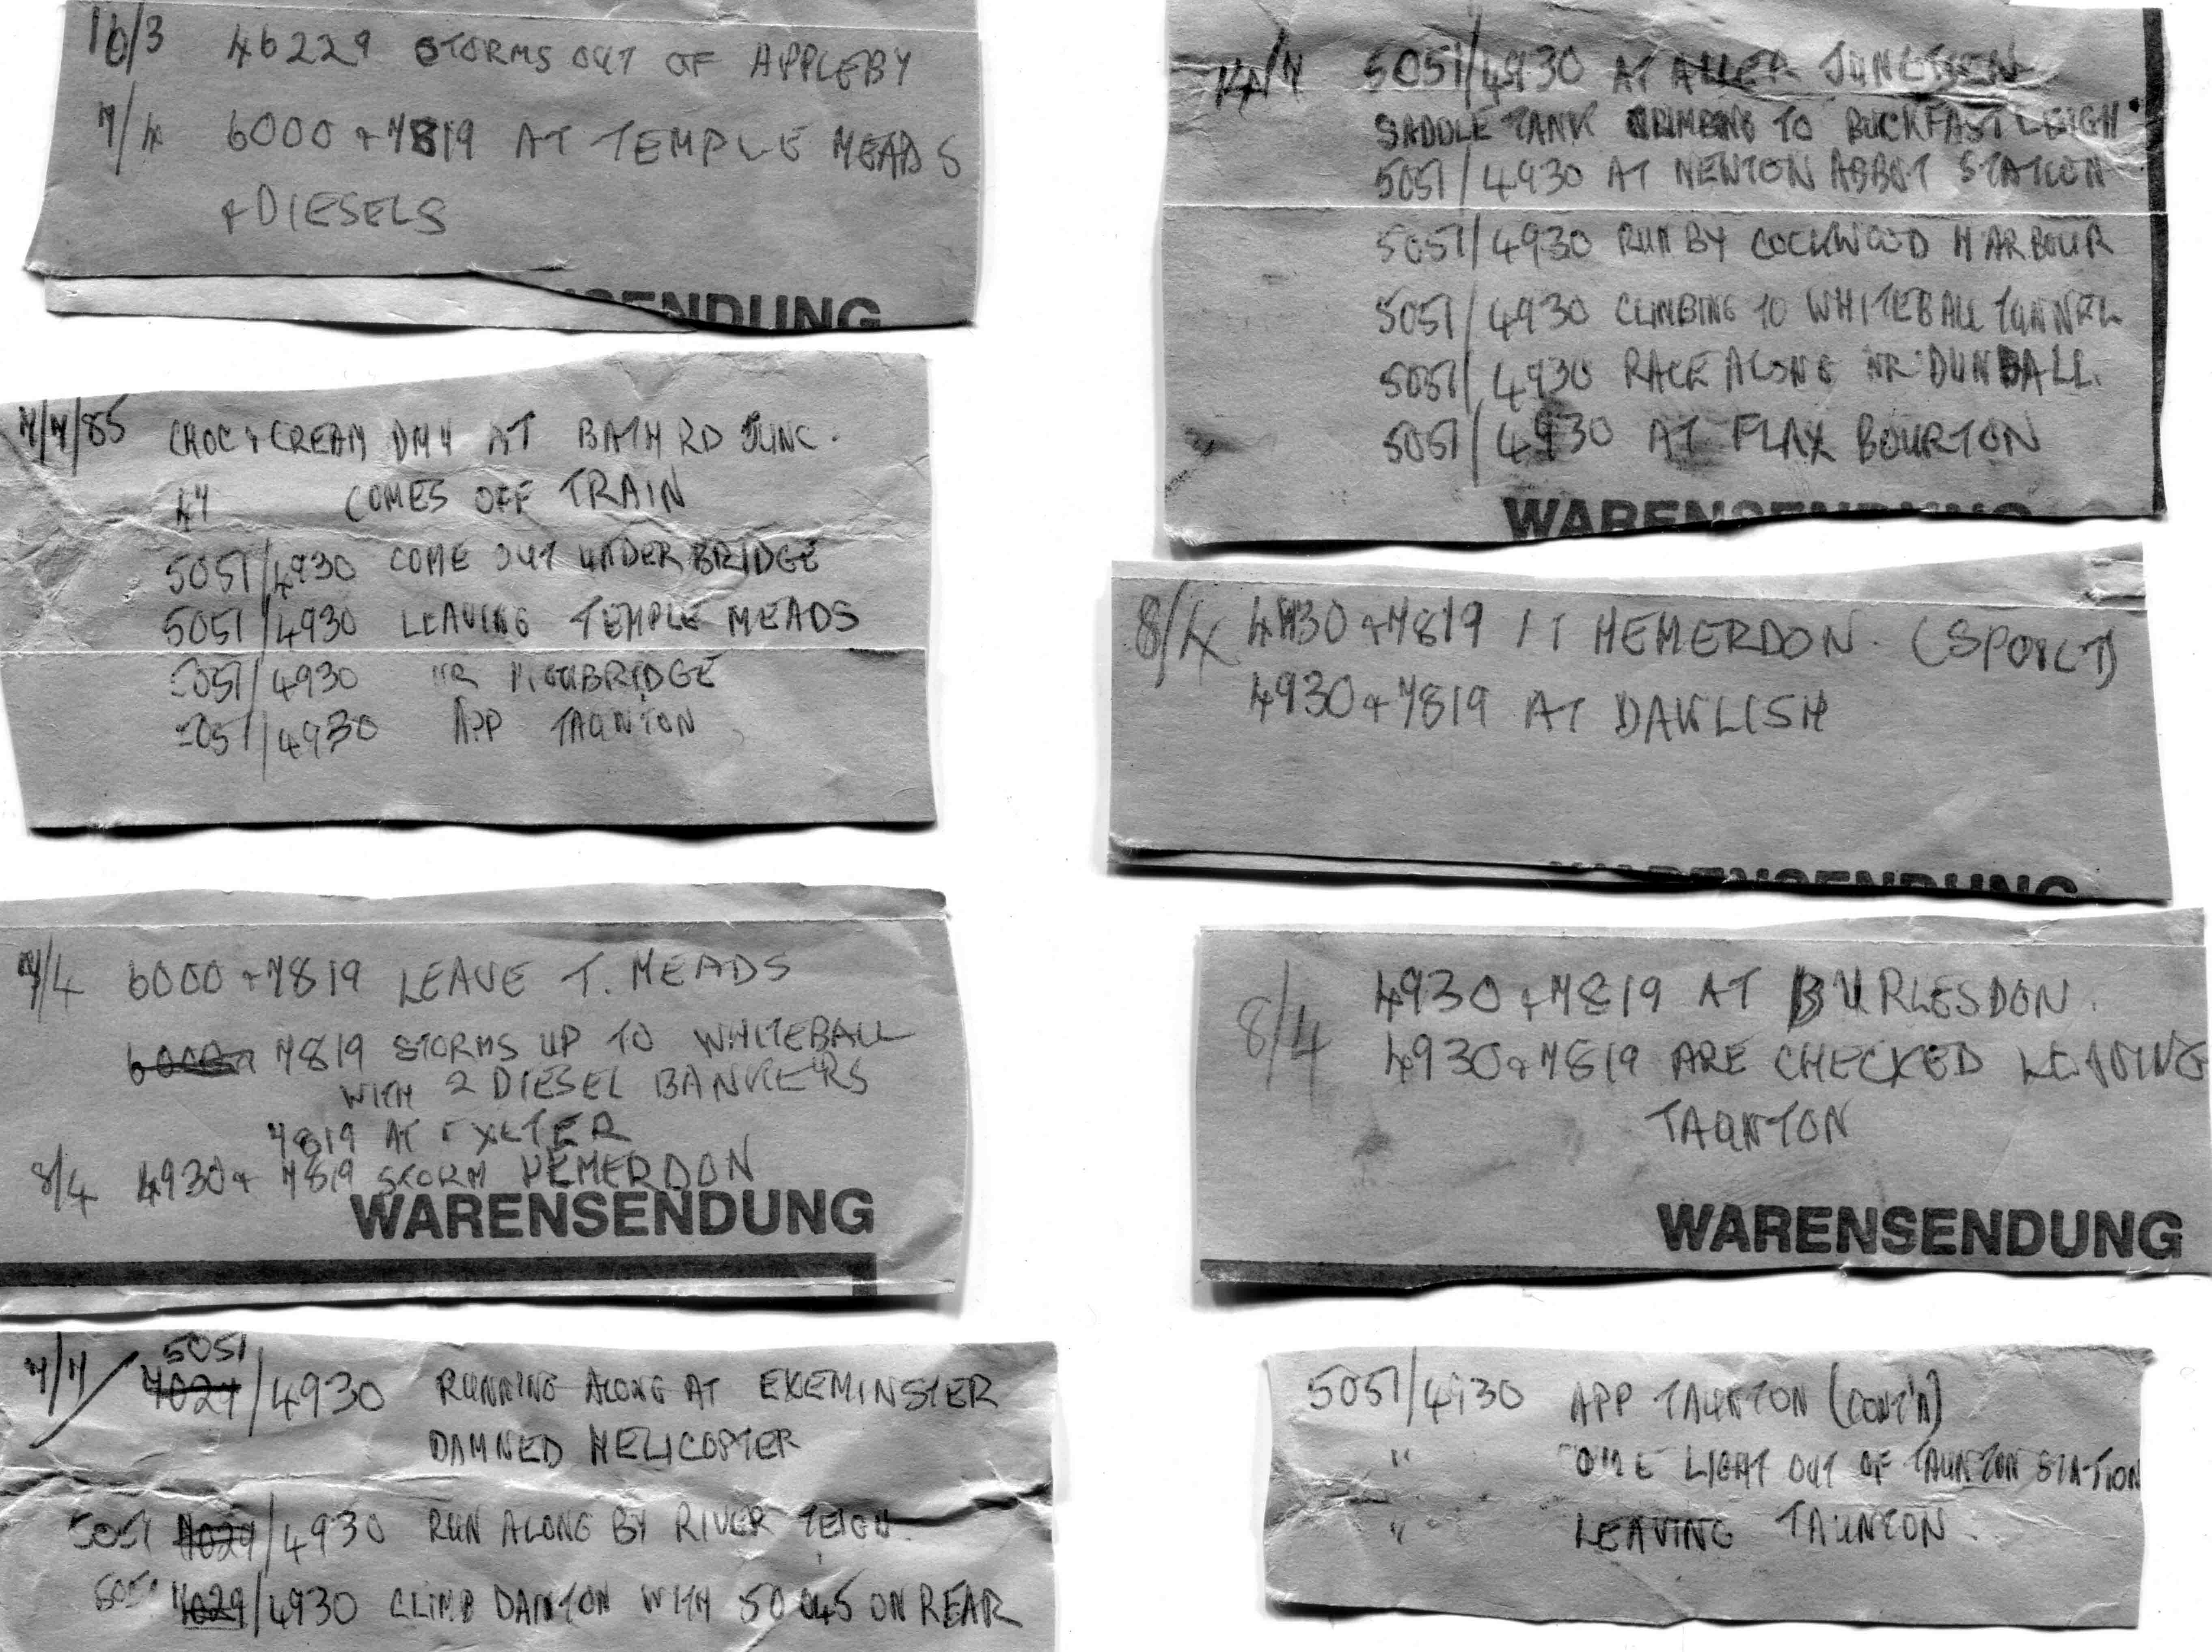 16/3 46229 STORMS OUT OF APPLEBY
7/4 6000 + 7819 AT TEMPLE MEADS
+ DIESELS
SENDUNG
7/7/85 CHOC & CREAM DMU AT BATH RD JUNC.
47 COMES OFF TRAIN
5051/4930 COME OUT UNDER BRIDGE
5051/4930 LEAVING TEMPLE MEADS
5051/4930 NR
5051/4930 APP TAUNTON
7/4 6000 + 7819 LEAVE T. MEADS
7819 STORMS UP TO WHITEBALL
WITH 2 DIESEL BANKERS
7819 AT EXETER
8/4 4930 + 7819 STORM HEMERDON
WARENSENDUNG
7/7 5051
7029/4930 RUNNING ALONG AT EXEMINSTER
DAMNED HELICOPTER
5051 7029/4930 RUN ALONG BY RIVER TEIGN.
5051 7029/4930 CLIMB DAINTON WITH 50 045 ON REAR
14/7 5051/4930 AT ALLER JUNCTION
SADDLE TANK CLIMBING TO BUCKFASTLEIGH
5051/4930 AT NEWTON ABBOT STATION
5051/4930 RUN BY COCKWOOD HARBOUR
5051/4930 CLIMBING TO WHITEBALL TUNNEL
5051/4930 RACE ALONG NR DUNBALL.
5051/4930 AT FLAX BOURTON
WARENSENDUNG
8/4 4930 + 7819 AT HEMERDON. (SPOILT)
4930 + 7819 AT DAWLISH
WARENSENDUNG
8/4 4930 + 7819 AT BURLESDON.
4930 + 7819 ARE CHECKED LEAVING
TAUNTON
WARENSENDUNG
5051/4930 APP TAUNTON (CONT'D)
" COME LIGHT OUT OF TAUNTON STATION
" LEAVING TAUNTON.